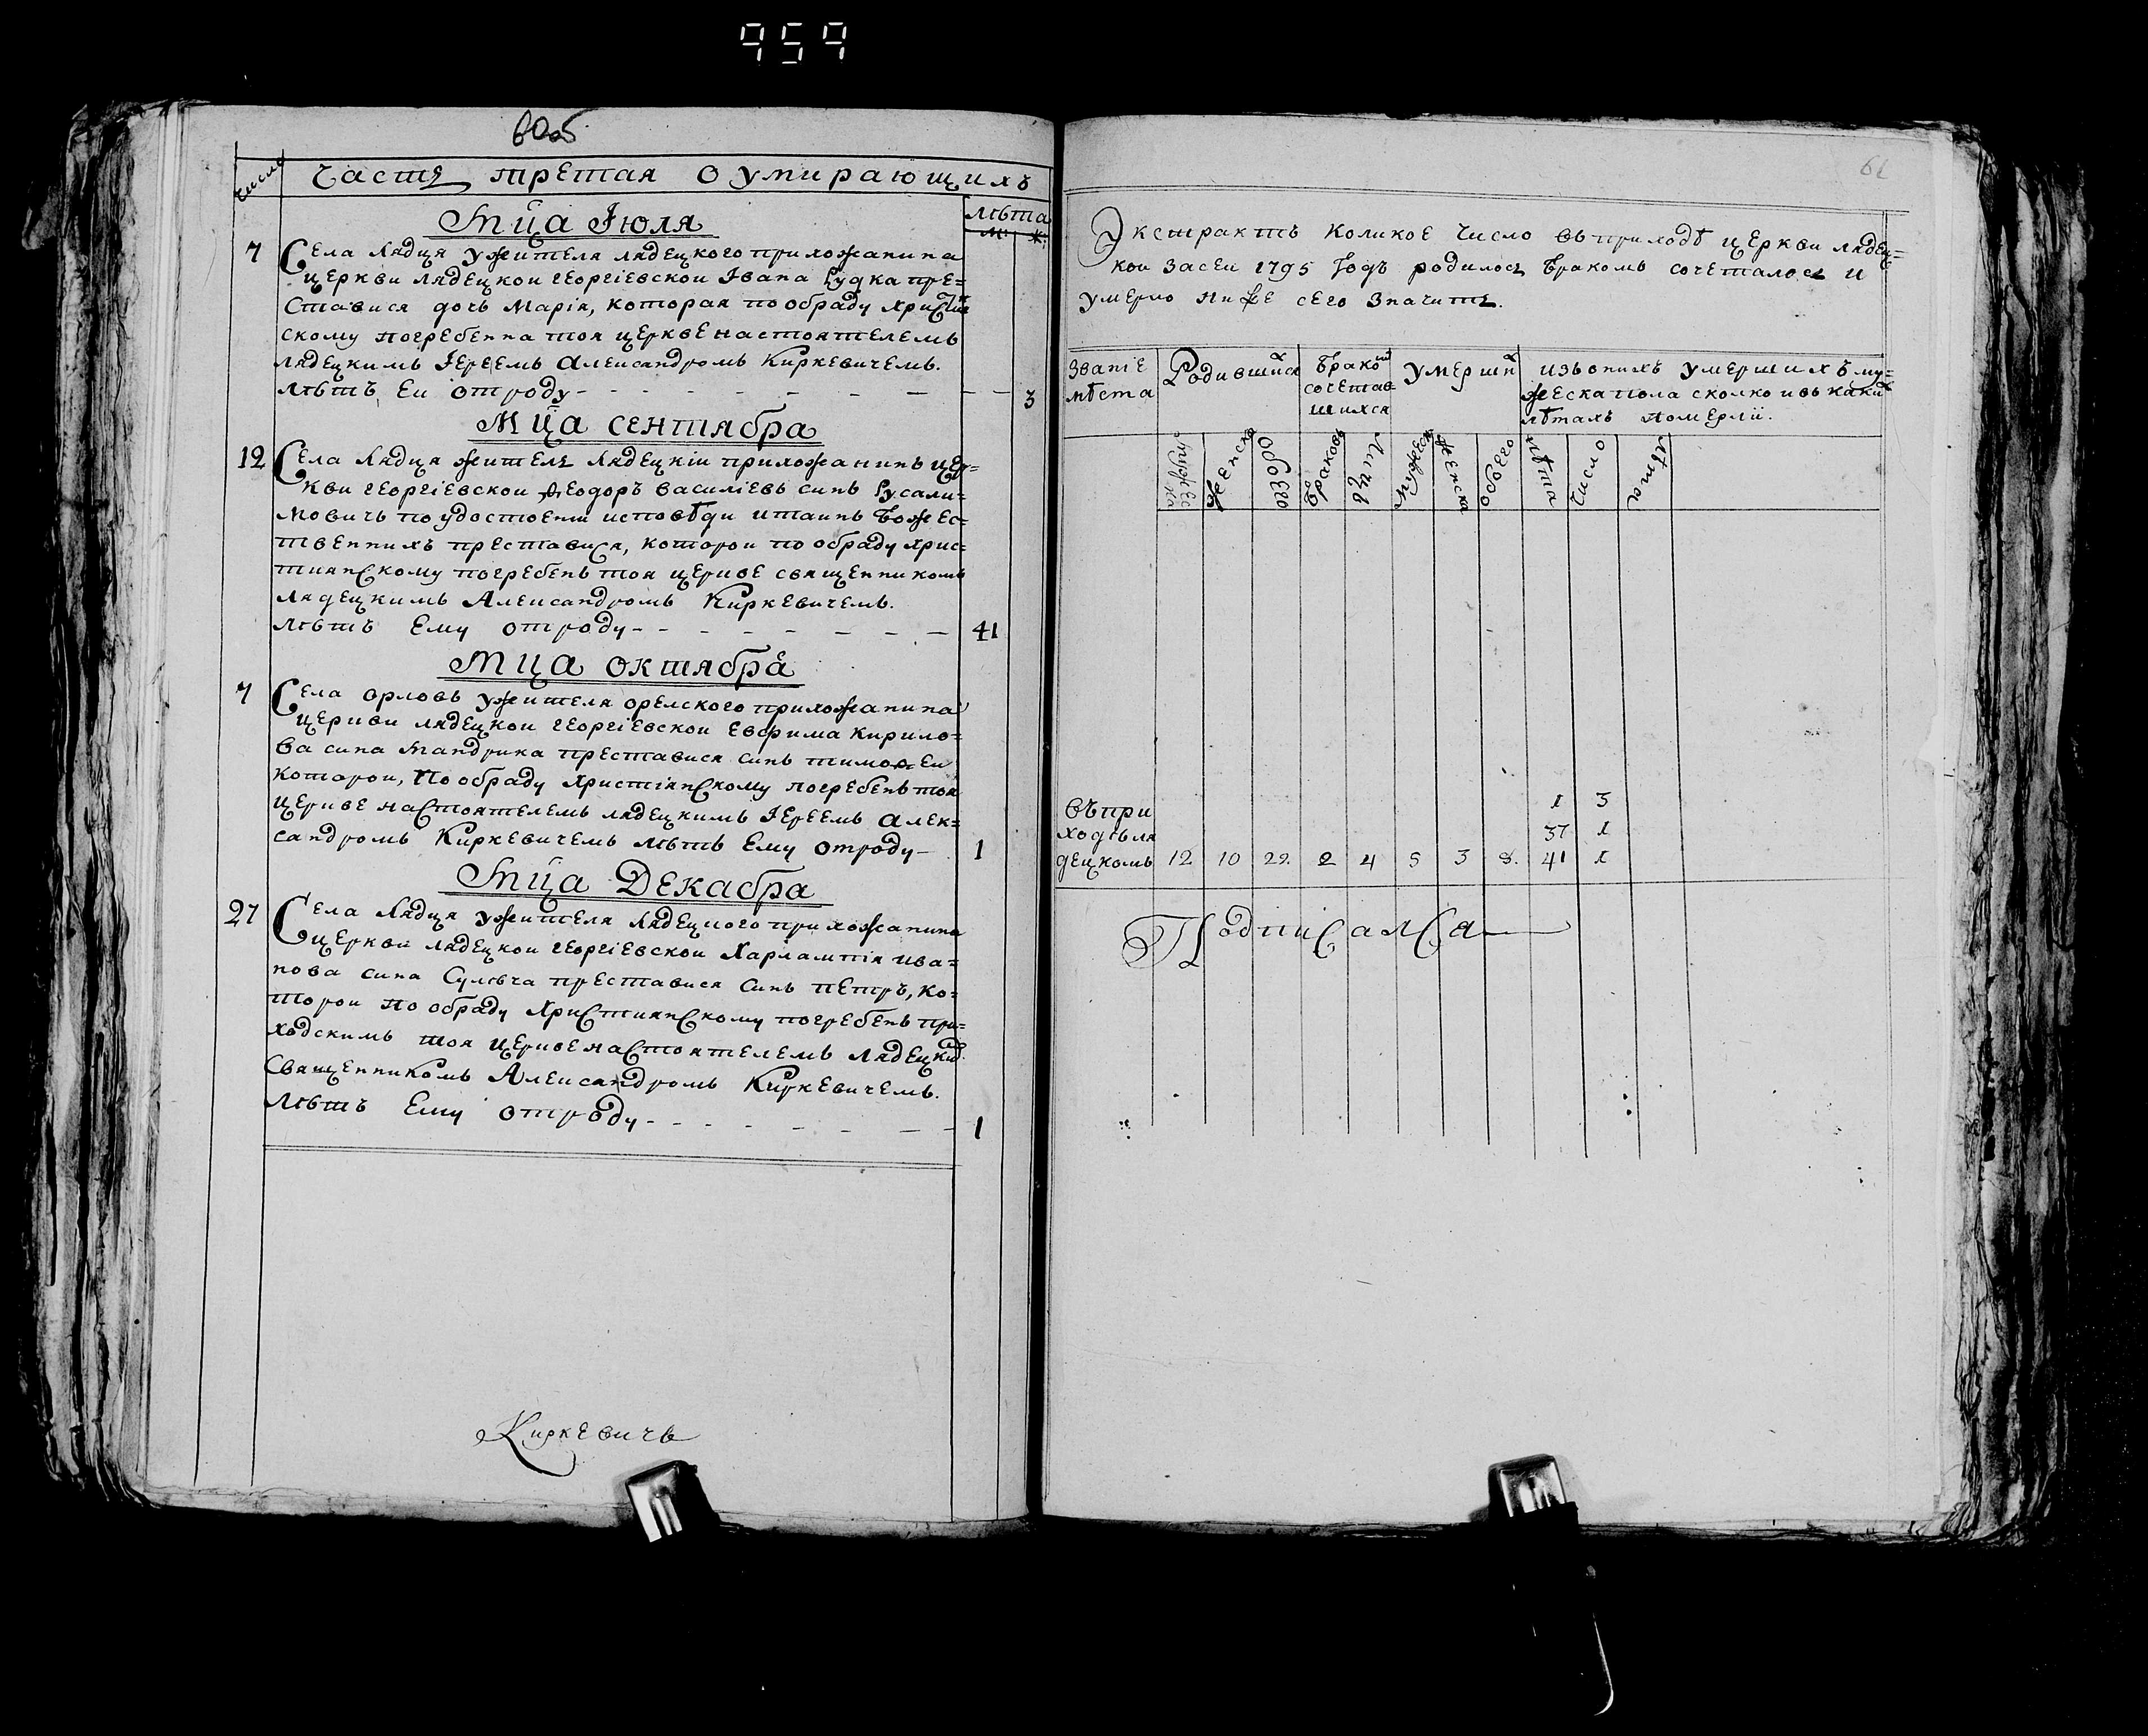 959
60об
Число
Часть третая о умирающихъ
Лѣта
м: ж:
Мца Іюля
7
Села Лядця у жителя лядецкого прихожанина
церкви лядецкой георгіевской Івана Рудка пре=
ставися дочь Марія, которая по обряду христіан
скому погребенна тоя церкве настоятелемъ
лядецкимъ Іереемъ Александромъ Киркевичемъ.
Лѣтъ ей отроду - - - - - - - 3
Мца сентября
12
Села Лядця житель Лядецкій прихожанинъ цер=
кви георгіевской Ѳеодоръ василіевъ синъ Русали=
мовичъ по удостоеніи исповѣди и таинъ Божес=
твеннихъ преставися, которой по обряду хрис=
тиянскому погребенъ тоя церкве священникомъ
лядецкимъ Александромъ Киркевичемъ.
Лѣтъ Ему отроду - - - - - - - 41
Мца октября
7
Села орловъ у жителя орелского прихожанина
церкви лядецкой георгіевской Евфима Кирило=
ва сина Мандрика преставися синъ тимоѳей
которой, по обряду христіянскому погребенъ тоя
церкве настоятелемъ лядецкимъ Іереемъ алек=
сандромъ Киркевичемъ лѣтъ Ему отроду - 1
Мца Декабра
27
Села Лядця у жителя Лядецкого прихожанина
церкви лядецкой георгіевской Харлампія ива=
нова сина Сулѣча преставися синъ петръ, ко=
торой по обряду християнскому погребенъ при=
ходскимъ тоя церкве настоятелемъ лядецким
священникомъ Александромъ Киркевичемъ.
Лѣтъ Ему отроду - - - - - - - 1
Киркевичъ
61
Экстрактъ Коликое число въ приходѣ церкви лядец=
кой за сей 1795 годъ родилось бракомъ сочеталось и
умерло ниже сего значитъ.
Званіе
мѣста
Родившихся
Брако
сочетав
шихся
умершихъ
изъ онихъ умершихъ му=
жеска пола сколко и въ какихъ
лѣтахъ померлй.
мужес
ка
женска
обоего
Браковъ
Лицъ
Мужеска
женска
обоего
лѣта
число
лѣта
въ при 1 3
ходѣ ля 37 1
децкомъ 12 10 22 2 4 5 3 8. 41 1
Подписался